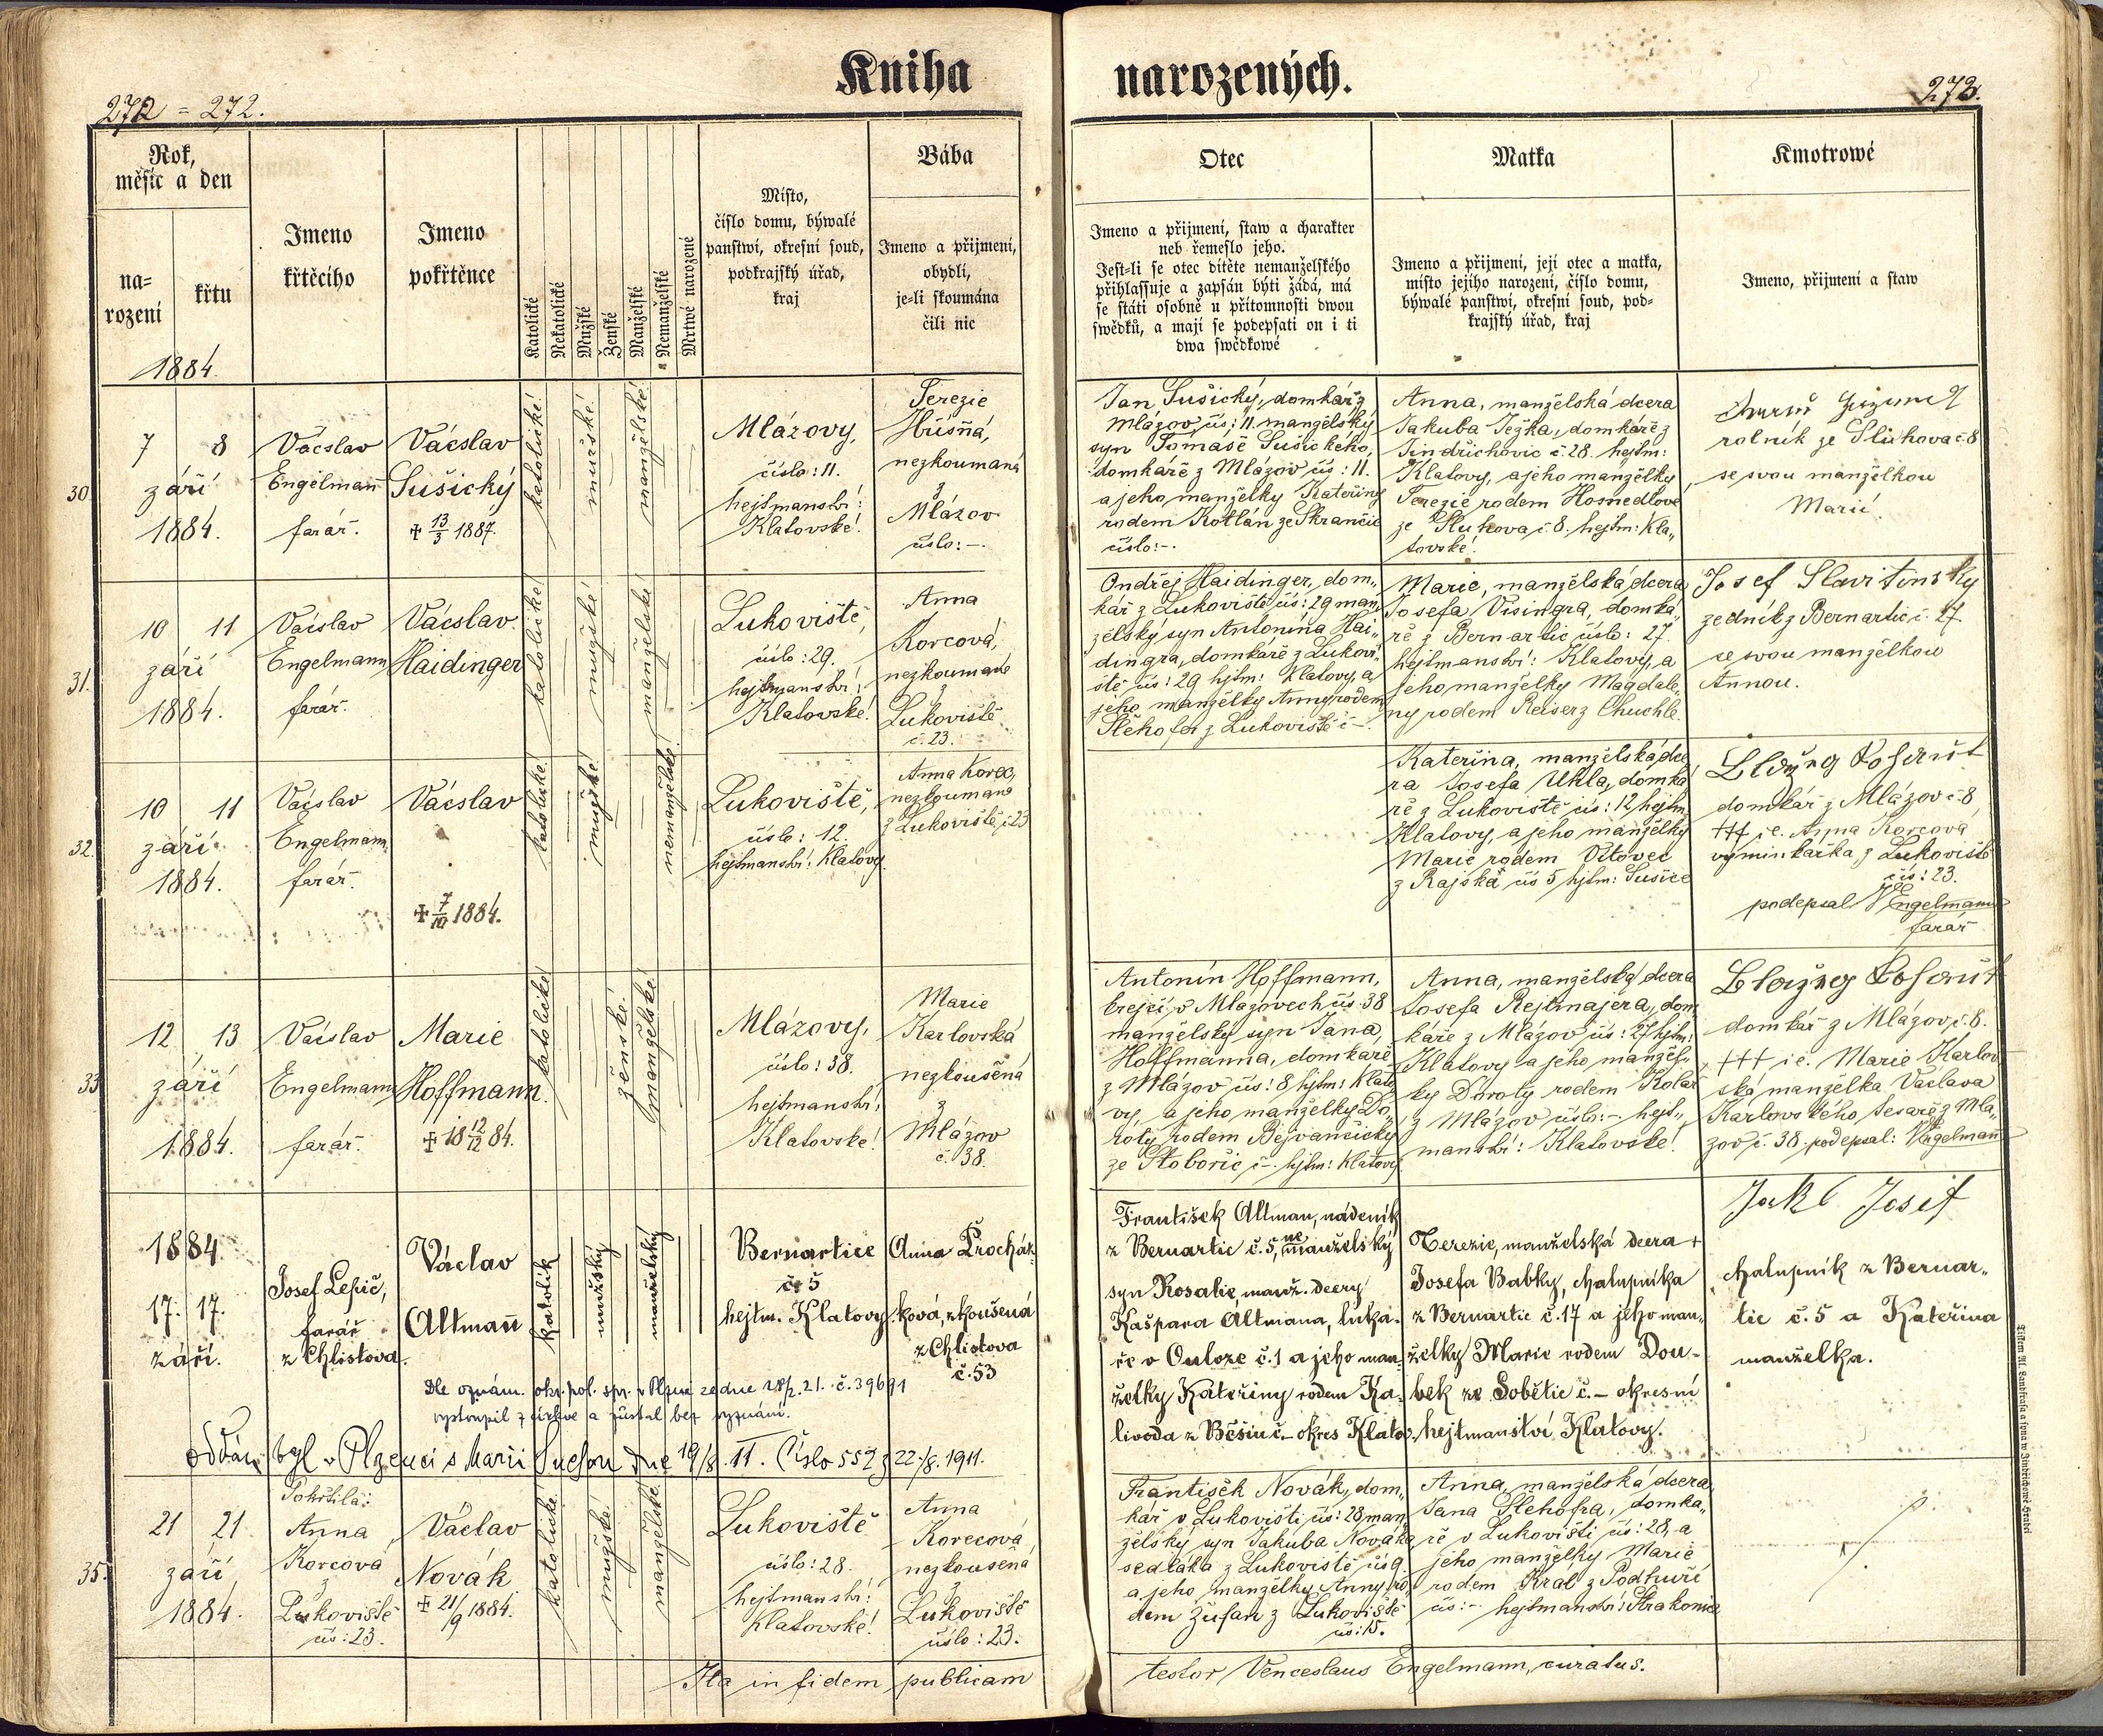 Kniha narozených.
272 = 272.
273.
Rok,
měsíc a den
na=
rození
křtu
1884.
Jmeno
křtěcího
Jmeno
pokřtěnce
Katolické
Nekatolické
Mužské
Ženské
Manželské
Nemanželské
Mrtwé narozené
Místo,
číslo domu, býwalé
panstwí, okresní soud,
podkrajský úřad,
kraj
Bába
Jmeno a přijmení,
obydlí,
je=li skoumána
čili nic
Otec
Jmeno a přijmení, staw a charakter
neb řemeslo jeho.
Jest=li se otec dítěte nemanželského
přihlassuje a zapsán býti žádá, má
se státi osobně u přítomnosti dwou
swědků, a mají se podepsati on i ti
dwa swědkowé
Matka
Jmeno a přijmení, její otec a matka,
místo jejího narození, číslo domu,
býwalé panstwí, okresní soud, pod=
krajský úřad, kraj
Kmotrowé
Jmeno, přijmení a staw
30.
7 8
září
1884.
Vácslav
Engelmann
farář.
Vácslav
Sušický
+ 13/3 1887.
katolické!
mužské!
manželské!
Mlázovy,
číslo: 11.
hejtmanství:
Klatovské!
Terezie
Hřísná,
nezkoumaná
z
Mlázov
číslo: -.
Jan Sušický, domkář z
Mlázov čís: 11. manželský
syn Tomáše Sušického,
domkáře z Mlázov čís: 11.
a jeho manželky Kateřiny
rodem Kotlán ze Skrančic
číslo: -.
Anna, manželská dcera
Jakuba Ježka, domkáře z
Jindřichovic č. 28. hejtm:
Klatovy, a jeho manželky
Terezie rodem Hosnedlove
ze Sluhova č. 8. hejtm: Kla„
tovské!
rolník ze Sluhova č. 8
se svou manželkou
Marií.
31.
10 11
září
1884.
Vácslav
Engelmann
farář.
Vácslav
Haidinger
katolické!
mužské!
manželské!
Lukoviště,
číslo: 29.
hejtmanství:
Klatovské!
Anna
Korcová,
nezkoumaná
z
Lukoviště
č. 23.
Ondřej Haidinger, dom„
kář z Lukoviště čís: 29 man„
želský syn Antonína Hai„
dingra, domkáře z Lukovi„
ště čís: 29 hjtm: Klatovy, a
jeho manželky Anny rodem
Šlehofer z Lukoviště č -.
Marie, manželská dcera
Josefa Visingra, domká„
ře z Bernartic číslo: 27.
hejtmanství: Klatovy, a
jeho manželky Magdale„
ny rodem Reiser z Chuchle.
Josef Slavitinsky
zedník z Bernartic č. 27
se svou manželkou
Annou.
32.
10 11
září
1884.
Vácslav
Engelmann
farář.
Vácslav
+ 7/10 1884.
katolické!
mužské!
nemanželské!
Lukoviště,
číslo: 12.
hejtmanství: Klatovy.
Anna Korec,
nezkoumaná
z Lukoviště, č. 23
Kateřina, manželská dce„
ra Josefa Uhla, domká„
ře z Lukoviště čís: 12 hejtm.
Klatovy, a jeho manželky
Marie rodem Vítovec
z Rajská čís 5 hjtm: Sušice
domkář z Mlázov č. 8
+++ i.e. Anna Korcová
výminkářka z Lukoviště
čís: 23.
podepsal V Engelmann
farář
33.
12 13
září
1884.
Vácslav
Engelmann
farář.
Marie
Hoffmann.
+ 18 12/12 84.
katolické!
ženské!
manželské!
Mlázovy,
číslo: 38.
hejtmanství:
Klatovské!
Marie
Karlovská
nezkoušená
z
Mlázov
č. 38.
Antonín Hoffmann,
krejčí v Mlázovech čís: 38
manželský syn Jana,
Hoffmanna, domkáře
z Mlázov čís: 8 hjtm: Klato„
vy, a jeho manželky Do„
roty rodem Bejvančický
ze Slobořic č -. hjtm: Klatovy.
Anna, manželská dcera
Josefa Rejtmajera, dom„
káře z Mlázov čís: 27 hjtm:
Klatovy a jeho manžel„
ky Doroty rodem Kolář
z Mlázov číslo: - hejt„
manství: Klatovské!
domkář z Mlázov, č. 8.
+++ i.e. Marie Karlov„
ská manželka Václava
Karlovského, tesaře z Mlá„
zov č. 38. podepsal: VEngelmann
1884
17. 17.
září.
Josef Lepič,
farář
z Chlistova.
Václav
Altmañ
katolík
mužský
manželský
Bernartice
č. 5
hejtm. Klatovy
Anna Procház„
ková, zkoušená
z Chlistova
č. 53
František Altman, nádeník
z Bernartic č. 5, nemanželský
syn Rosalie, manž. dcery
Kašpara Altmana, luka„
ře v Ouloze č. 1 a jeho man„
želky Kateřiny rodem Ka„
livoda z Běšin č. - okres Klatov.
Terezie, manželská dcera +
Josefa Babky, chalupníka
z Bernartic č. 17 a jeho man„
želky Marie rodem Dou„
bek ze Sobětic č. - okresní
hejtmanství Klatovy.
Jakl Josef
chalupník z Bernar„
tic č. 5 a Kateřina
manželka.
Dle oznám. okr. pol. spr. v Plzni ze dne 28/2. 21. č. 39691
vystoupil z církve a zůstal bez vyznání.
oddán byl v Plzenci s Marií Suchou dne 19/8. 11. Číslo 552 z 22./8. 1911.
35.
21 21.
září
1884.
Pokřtila:
Anna
Korcová
z
Lukoviště
čís: 23.
Václav
Novák
+ 21/9 1884.
katolické!
mužské!
manželské!
Lukoviště
číslo: 28.
hejtmanství:
Klatovské!
Anna
Korecová
nezkoušená
z
Lukoviště
číslo: 23.
František Novák, dom„
kář v Lukovišti čís: 28 man„
želský syn Jakuba Nováka
sedláka z Lukoviště čís 9.
a jeho manželky Anny ro„
dem Žufan z Lukoviště
čís: 15.
Anna, manželská dcera
Jana Šlehofra, domká„
ře v Lukovišti čís: 28, a
jeho manželky Marie
rodem Král z Podhuří
čís: - hejtmanství: Strakonice
Ita in fidem publicam
testor Venceslaus Engelmann, curatus.
Tiskem Al. Landfrasa a syna w Jindřichowě Hradci